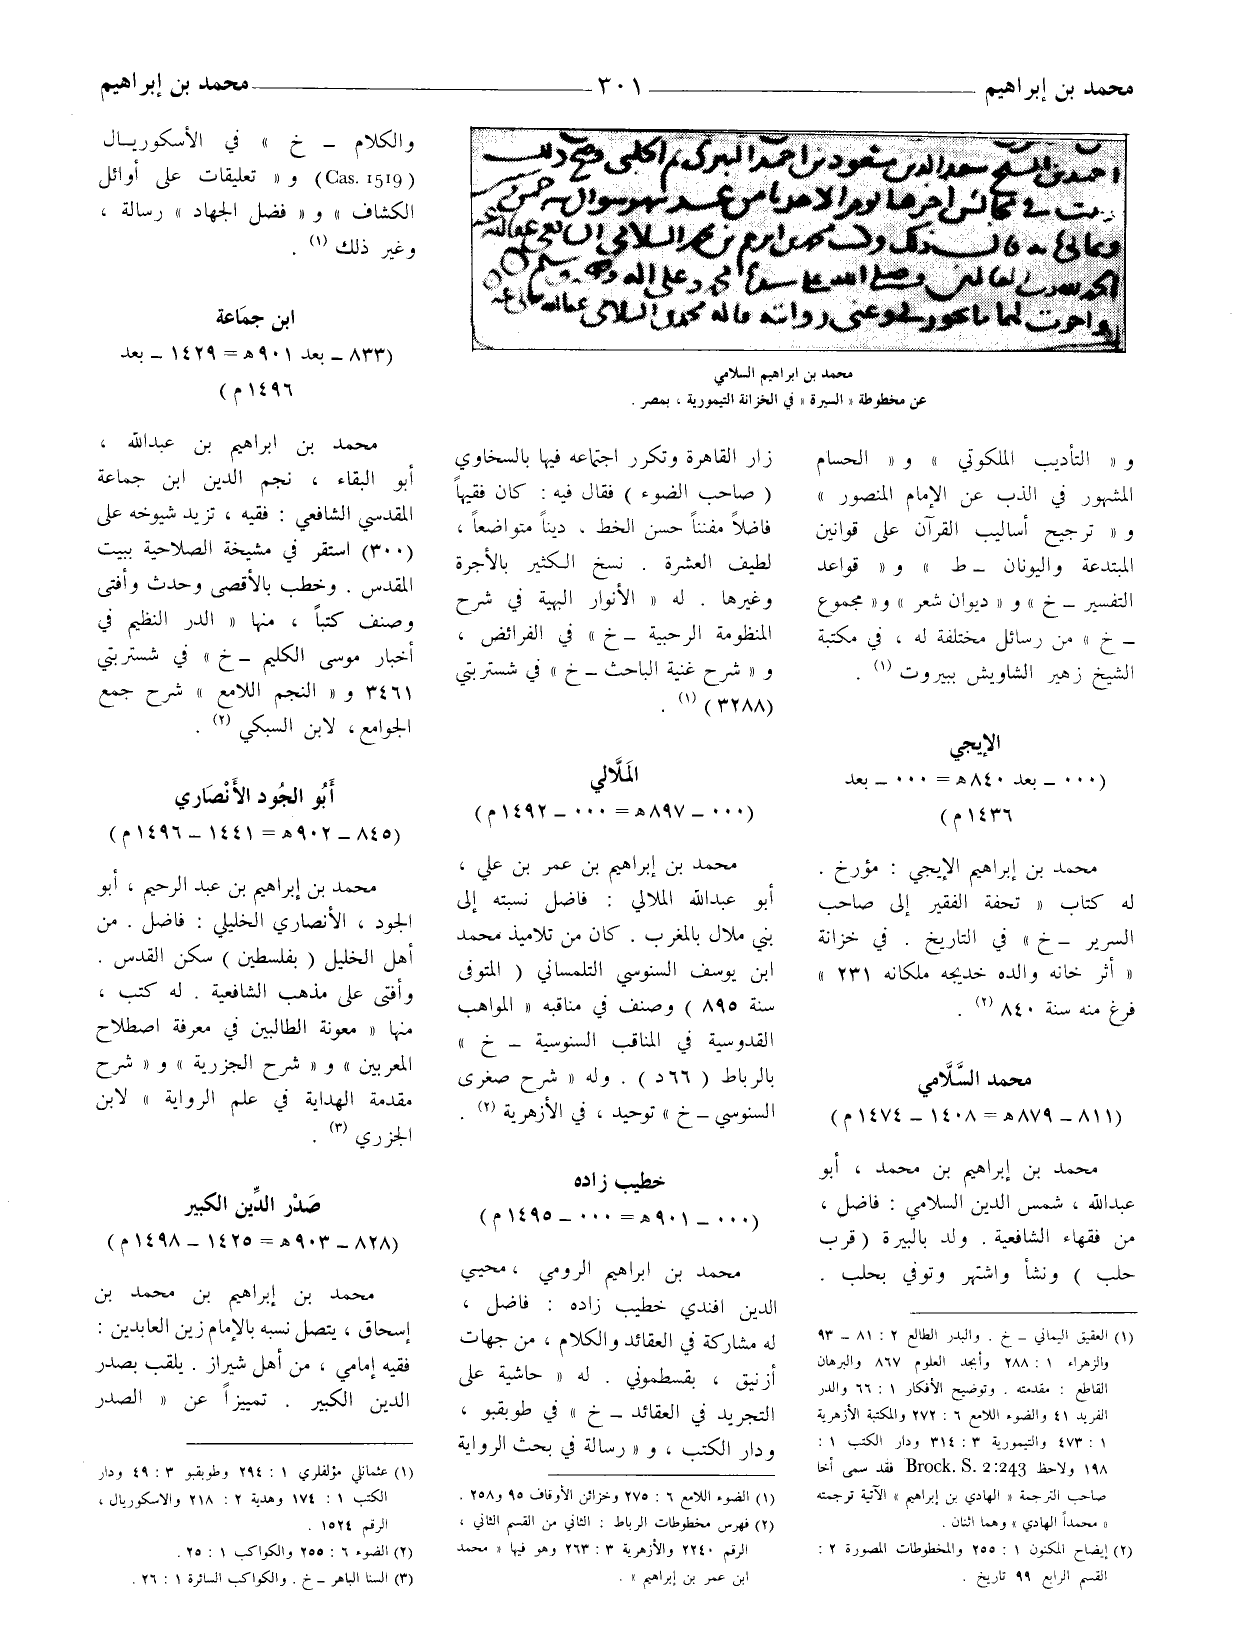 محمد بن إبراهيم
٣٠١
محمد بن إبراهيم
محمد بن ابراهيم السلامي
عن مخطوطة « السيرة » في الخزانة التيمورية ، بمصر .
و « التأديب الملكوتي » و « الحسام
المشهور في الذب عن الإمام المنصور »
و « ترجيح أساليب القرآن على قوانين
المبتدعة واليونان ــ ط » و « قواعد
التفسير ــ خ » و « ديوان شعر » و« مجموع
ــ خ » من رسائل مختلفة له ، في مكتبة
الشيخ زهير الشاويش ببيروت (١) .
الإيجي
(٠٠٠ ــ بعد ٨٤٠ ه‍ = ٠٠٠ ــ بعد
١٤٣٦ م)
محمد بن إبراهيم الإيجي : مؤرخ .
له كتاب « تحفة الفقير إلى صاحب
السرير ــ خ » في التاريخ . في خزانة
« أثر خانه والده خديجه ملكانه ٢٣١ »
فرغ منه سنة ٨٤٠ (٢) .
محمد السَّلَّامي
(٨١١ ــ ٨٧٩ ه‍ = ١٤٠٨ ــ ١٤٧٤ م)
محمد بن إبراهيم بن محمد ، أبو
عبدالله ، شمس الدين السلامي : فاضل ،
من فقهاء الشافعية . ولد بالبيرة ( قرب
حلب ) ونشأ واشتهر وتوفي بحلب .
(١) العقيق اليماني ــ خ . والبدر الطالع ٢ : ٨١ ــ ٩٣
والزهراء ١ : ٢٨٨ وأبجد العلوم ٨٦٧ والبرهان
القاطع : مقدمته . وتوضيح الأفكار ١ : ٦٦ والدر
الفريد ٤١ والضوء اللامع ٦ : ٢٧٢ والمكتبة الأزهرية
١ : ٤٧٣ والتيمورية ٣ : ٣١٤ ودار الكتب ١ :
١٩٨ ولاحظ Brock. S. 2:243 فقد سمى أخا
صاحب الترجمة « الهادي بن إبراهيم » الآتية ترجمته
« محمداً الهادي » وهما اثنان .
(٢) إيضاح المكنون ١ : ٢٥٥ والمخطوطات المصورة ٢ :
القسم الرابع ٩٩ تاريخ .
زار القاهرة وتكرر اجتماعه فيها بالسخاوي
( صاحب الضوء ) فقال فيه : كان فقيهاً
فاضلاً مفنناً حسن الخط . ديناً متواضعاً ،
لطيف العشرة . نسخ الكثير بالأجرة
وغيرها . له « الأنوار البهية في شرح
المنظومة الرحبية ــ خ » في الفرائض ،
و « شرح غنية الباحث ــ خ » في شستربتي
(٣٢٨٨) (١) .
المَلَّالي
(٠٠٠ ــ ٨٩٧ ه‍ = ٠٠٠ ــ ١٤٩٢ م)
محمد بن إبراهيم بن عمر بن علي ،
أبو عبدالله الملالي : فاضل نسبته إلى
بني ملال بالمغرب . كان من تلاميذ محمد
ابن يوسف السنوسي التلمساني ( المتوفى
سنة ٨٩٥ ) وصنف في مناقبه « المواهب
القدوسية في المناقب السنوسية ــ خ »
بالرباط ( ٦٦د ) . وله « شرح صغرى
السنوسي ــ خ » توحيد ، في الأزهرية (٢) .
خطيب زاده
(٠٠٠ ــ ٩٠١ ه‍ = ٠٠٠ ــ ١٤٩٥ م)
محمد بن ابراهيم الرومي ، محيي
الدين افندي خطيب زاده : فاضل ،
له مشاركة في العقائد والكلام ، من جهات
أزنيق ، بقسطموني . له « حاشية على
التجريد في العقائد ــ خ » في طوبقبو ،
ودار الكتب ، و « رسالة في بحث الرواية
(١) الضوء اللامع ٦ : ٢٧٥ وخزائن الأوقاف ٩٥ و٢٥٨ .
(٢) فهرس مخطوطات الرباط : الثاني من القسم الثاني ،
الرقم ٢٢٤٠ والأزهرية ٣ : ٢٦٣ وهو فيها « محمد
ابن عمر بن إبراهيم » .
والكلام ــ خ » في الأسكوريال
(Cas. 1519) و « تعليقات على أوائل
الكشاف » و « فضل الجهاد » رسالة ،
وغير ذلك (١) .
ابن جمَاعة
(٨٣٣ ــ بعد ٩٠١ ه‍ = ١٤٢٩ ــ بعد
١٤٩٦ م)
محمد بن ابراهيم بن عبدالله ،
أبو البقاء ، نجم الدين ابن جماعة
المقدسي الشافعي : فقيه ، تزيد شيوخه على
(٣٠٠) استقر في مشيخة الصلاحية ببيت
المقدس . وخطب بالأقصى وحدث وأفتى
وصنف كتباً ، منها « الدر النظيم في
أخبار موسى الكليم ــ خ » في شستربتي
٣٤٦١ و « النجم اللامع » شرح جمع
الجوامع ، لابن السبكي (٢) .
أَبُو الجُود الأَنْصَاري
(٨٤٥ ــ ٩٠٢ ه‍ = ١٤٤١ ــ ١٤٩٦ م)
محمد بن إبراهيم بن عبد الرحيم ، أبو
الجود ، الأنصاري الخليلي : فاضل . من
أهل الخليل ( بفلسطين ) سكن القدس .
وأفتى على مذهب الشافعية . له كتب ،
منها « معونة الطالبين في معرفة اصطلاح
المعربين » و « شرح الجزرية » و « شرح
مقدمة الهداية في علم الرواية » لابن
الجزري (٣) .
صَدْر الدِّين الكبير
(٨٢٨ ــ ٩٠٣ ه‍ = ١٤٢٥ ــ ١٤٩٨ م)
محمد بن إبراهيم بن محمد بن
إسحاق ، يتصل نسبه بالإمام زين العابدين :
فقيه إمامي ، من أهل شيراز . يلقب بصدر
الدين الكبير . تمييزاً عن « الصدر
(١) عثمانلي مؤلفلري ١ : ٢٩٤ وطوبقبو ٣ : ٤٩ ودار
الكتب ١ : ١٧٤ وهدية ٢ : ٢١٨ والاسكوريال ،
الرقم ١٥٢٤ .
(٢) الضوء ٦ : ٢٥٥ والكواكب ١ : ٢٥ .
(٣) السنا الباهر ــ خ . والكواكب السائرة ١ : ٢٦ .